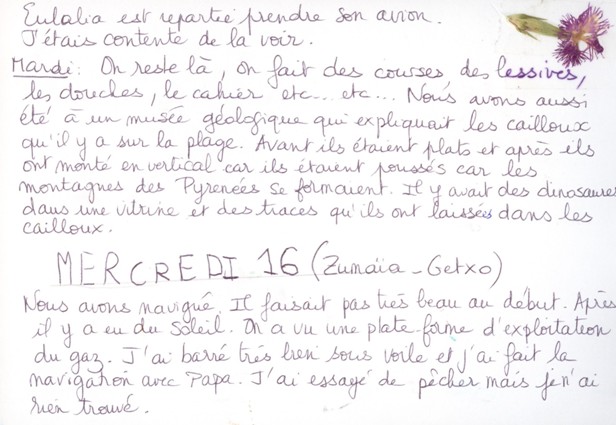 Eulalia est repartie prendre son avion.
J'étais contente de la voir.
Mardi: On reste là, on fait des courses, des lessives,
les douches, le cahier etc... etc... Nous avons aussi
été à un musée géologique qui expliquait les cailloux
qu'il y a sur la plage. Avant ils étaient plats et après ils
ont monté en vertical car ils étaient poussés car les
montagnes des Pyrenées se formaient. Il y avait des dinosaures
dans une vitrine et des traces qu'ils ont laissés dans les
cailloux.
MERCREDI 16 (Zumaïa - Getxo)
Nous avons navigué. Il faisait pas très beau au début. Après
il y a eu du soleil. On a vu une plate-forme d'exploitation
du gaz. J'ai barré très bien sous voile et j'ai fait la
navigation avec Papa. J'ai essayé de pêcher mais je n'ai
rien trouvé.